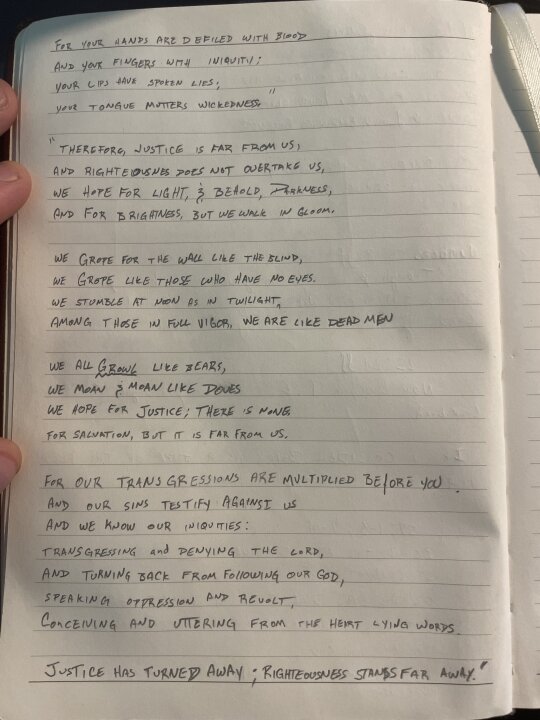 FOR YOUR HANDS ARE DEFILED WITH BLOOD
AND YOUR FINGERS WITH INIQUITY;
YOUR LIPS HAVE SPOKEN LIES;
YOUR TONGUE MUTTERS WICKEDNESS."
"THEREFORE, JUSTICE IS FAR FROM US,
AND RIGHTEOUSNES DOES NOT OVERTAKE US,
WE HOPE FOR LIGHT, & BEHOLD, DARKNESS,
AND FOR BRIGHTNESS, BUT WE WALK IN GLOOM.
WE GROPE FOR THE WALL LIKE THE BLIND,
WE GROPE LIKE THOSE WHO HAVE NO EYES.
WE STUMBLE AT NOON AS IN TWILIGHT,
AMONG THOSE IN FULL VIGOR, WE ARE LIKE DEAD MEN
WE ALL GROWL LIKE BEARS,
WE MOAN & MOAN LIKE DOVES
WE HOPE FOR JUSTICE; THERE IS NONE,
FOR SALVATION, BUT IT IS FAR FROM US.
FOR OUR TRANSGRESSIONS ARE MULTIPLIED BEFORE YOU.
AND OUR SINS TESTIFY AGAINST US
AND WE KNOW OUR INIQUTIES:
TRANSGRESSING and DENYING THE LORD,
AND TURNING BACK FROM FOLLOWING OUR GOD,
SPEAKING OPPRESSION AND REVOLT,
CONCEIVING AND UTTERING FROM THE HEART LYING WORDS.
JUSTICE HAS TURNED AWAY; RIGHTEOUSNESS STANDS FAR AWAY."